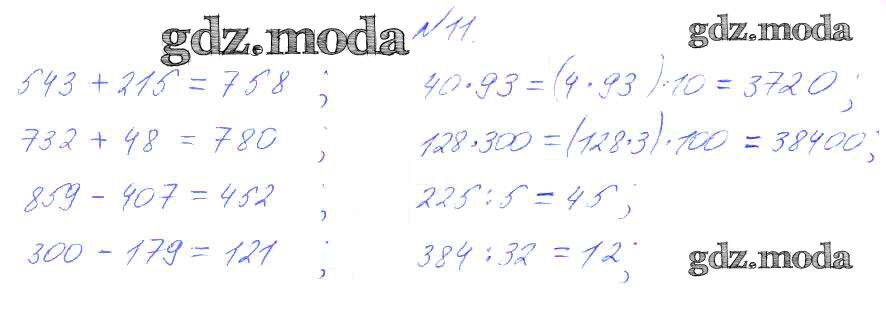 gdz.moda №11. gdz.moda
543 + 215 = 758 ; 40 · 93 = (4 · 93) · 10 = 3720 ;
732 + 48 = 780 ; 128 · 300 = (128 · 3) · 100 = 38400 ;
859 - 407 = 452 ; 225 : 5 = 45 ;
300 - 179 = 121 ; 384 : 32 = 12 ; gdz.moda